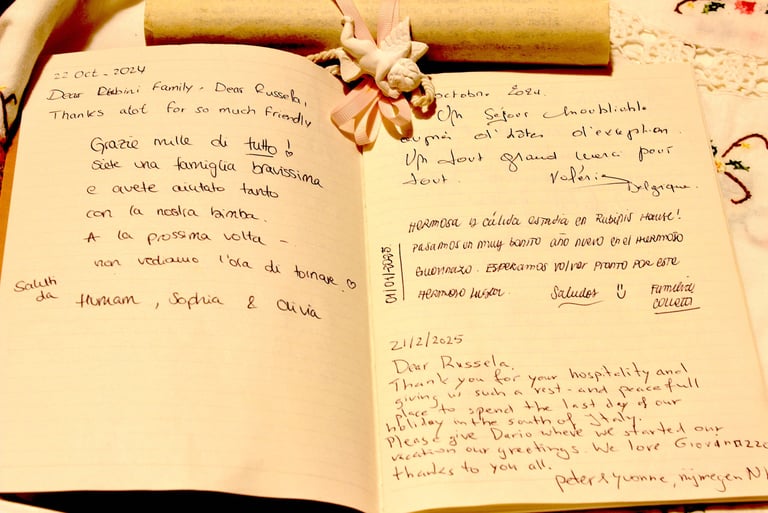 22 Oct - 2024
Dear Rubini Family - Dear Russela,
Thanks alot for so much friendly
Grazie mille di tutto!
siete una famiglia bravissima
e avete aiutato tanto
con la nostra bimba.
A la prossima volta -
non vediamo l'ora di tornare. ♡
Saluti
da Humam, Sophia & Olivia
octobre 2024.
Un Séjour inoubliable
auprès d'hôtes d'exception.
Un tout grand merci pour
tout. Valérie
Belgique.
HERMOSA y CÁLIDA ESTADIA EN RUBINIS HOUSE!
PASAMOS UN MUY BONITO AÑO NUEVO EN EL HERMOSO
ESPERAMOS VOLVER PRONTO POR ESTE
HERMOSO LUGAR. Saludos ☺ FAMILIA
COLLETTI
01/01/2025
21/2/2025
Dear Russela.
Thank you for your hospitality and
giving us such a rest- and peacefull
place to spend the last day of our
holiday in the south of Italy.
Please give Dario where we started our
vacation our greetings. We love Giovinazzo
thanks to you all.
peter & yvonne, nijmegen NL